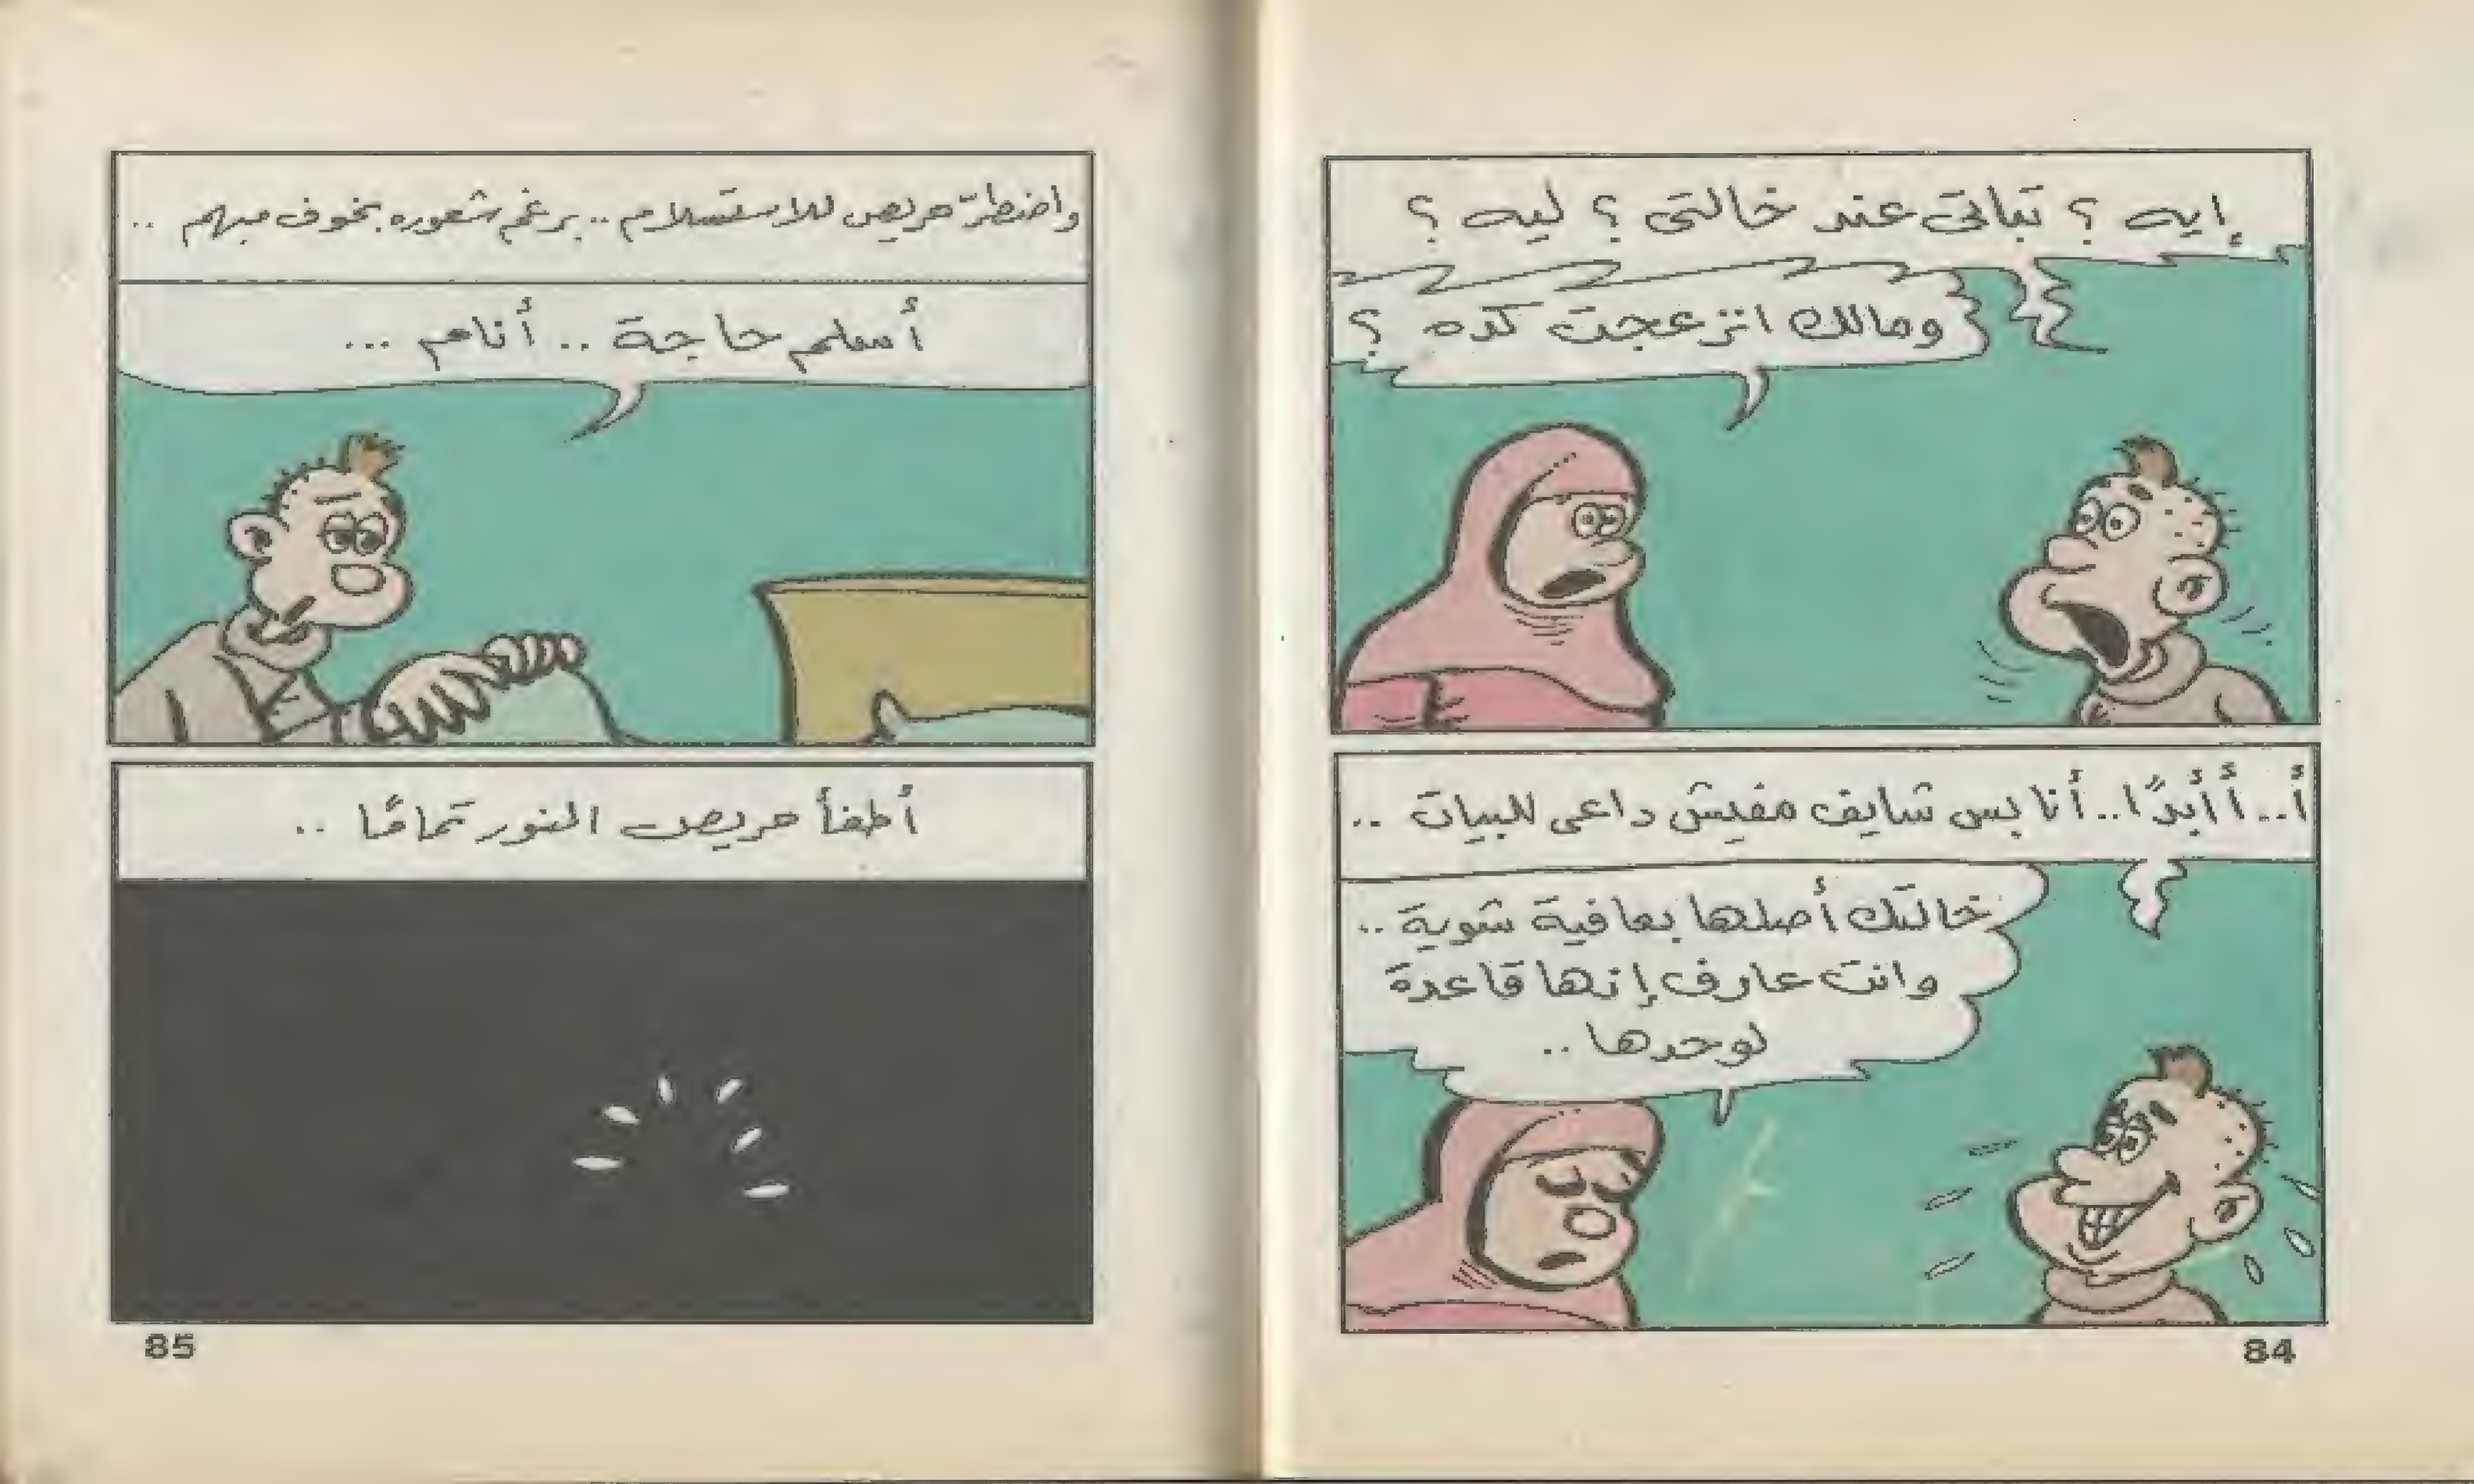 إيه ؟ تباتى عند خالتى ؟ ليه ؟
ومالك انزعجت كده ؟
أ.. أأبدًا.. أنا بس شايف مفيش داعى للبيات ..
خالتك أصلها بعافية شوية ..
وانت عارف إنها قاعدة
لوحدها ..
84
واضطرّ حريص للاستسلام .. برغم شعوره بخوف مبهم ..
أسلم حاجة .. أنام ...
أطفأ حريص النور تمامًا ..
85